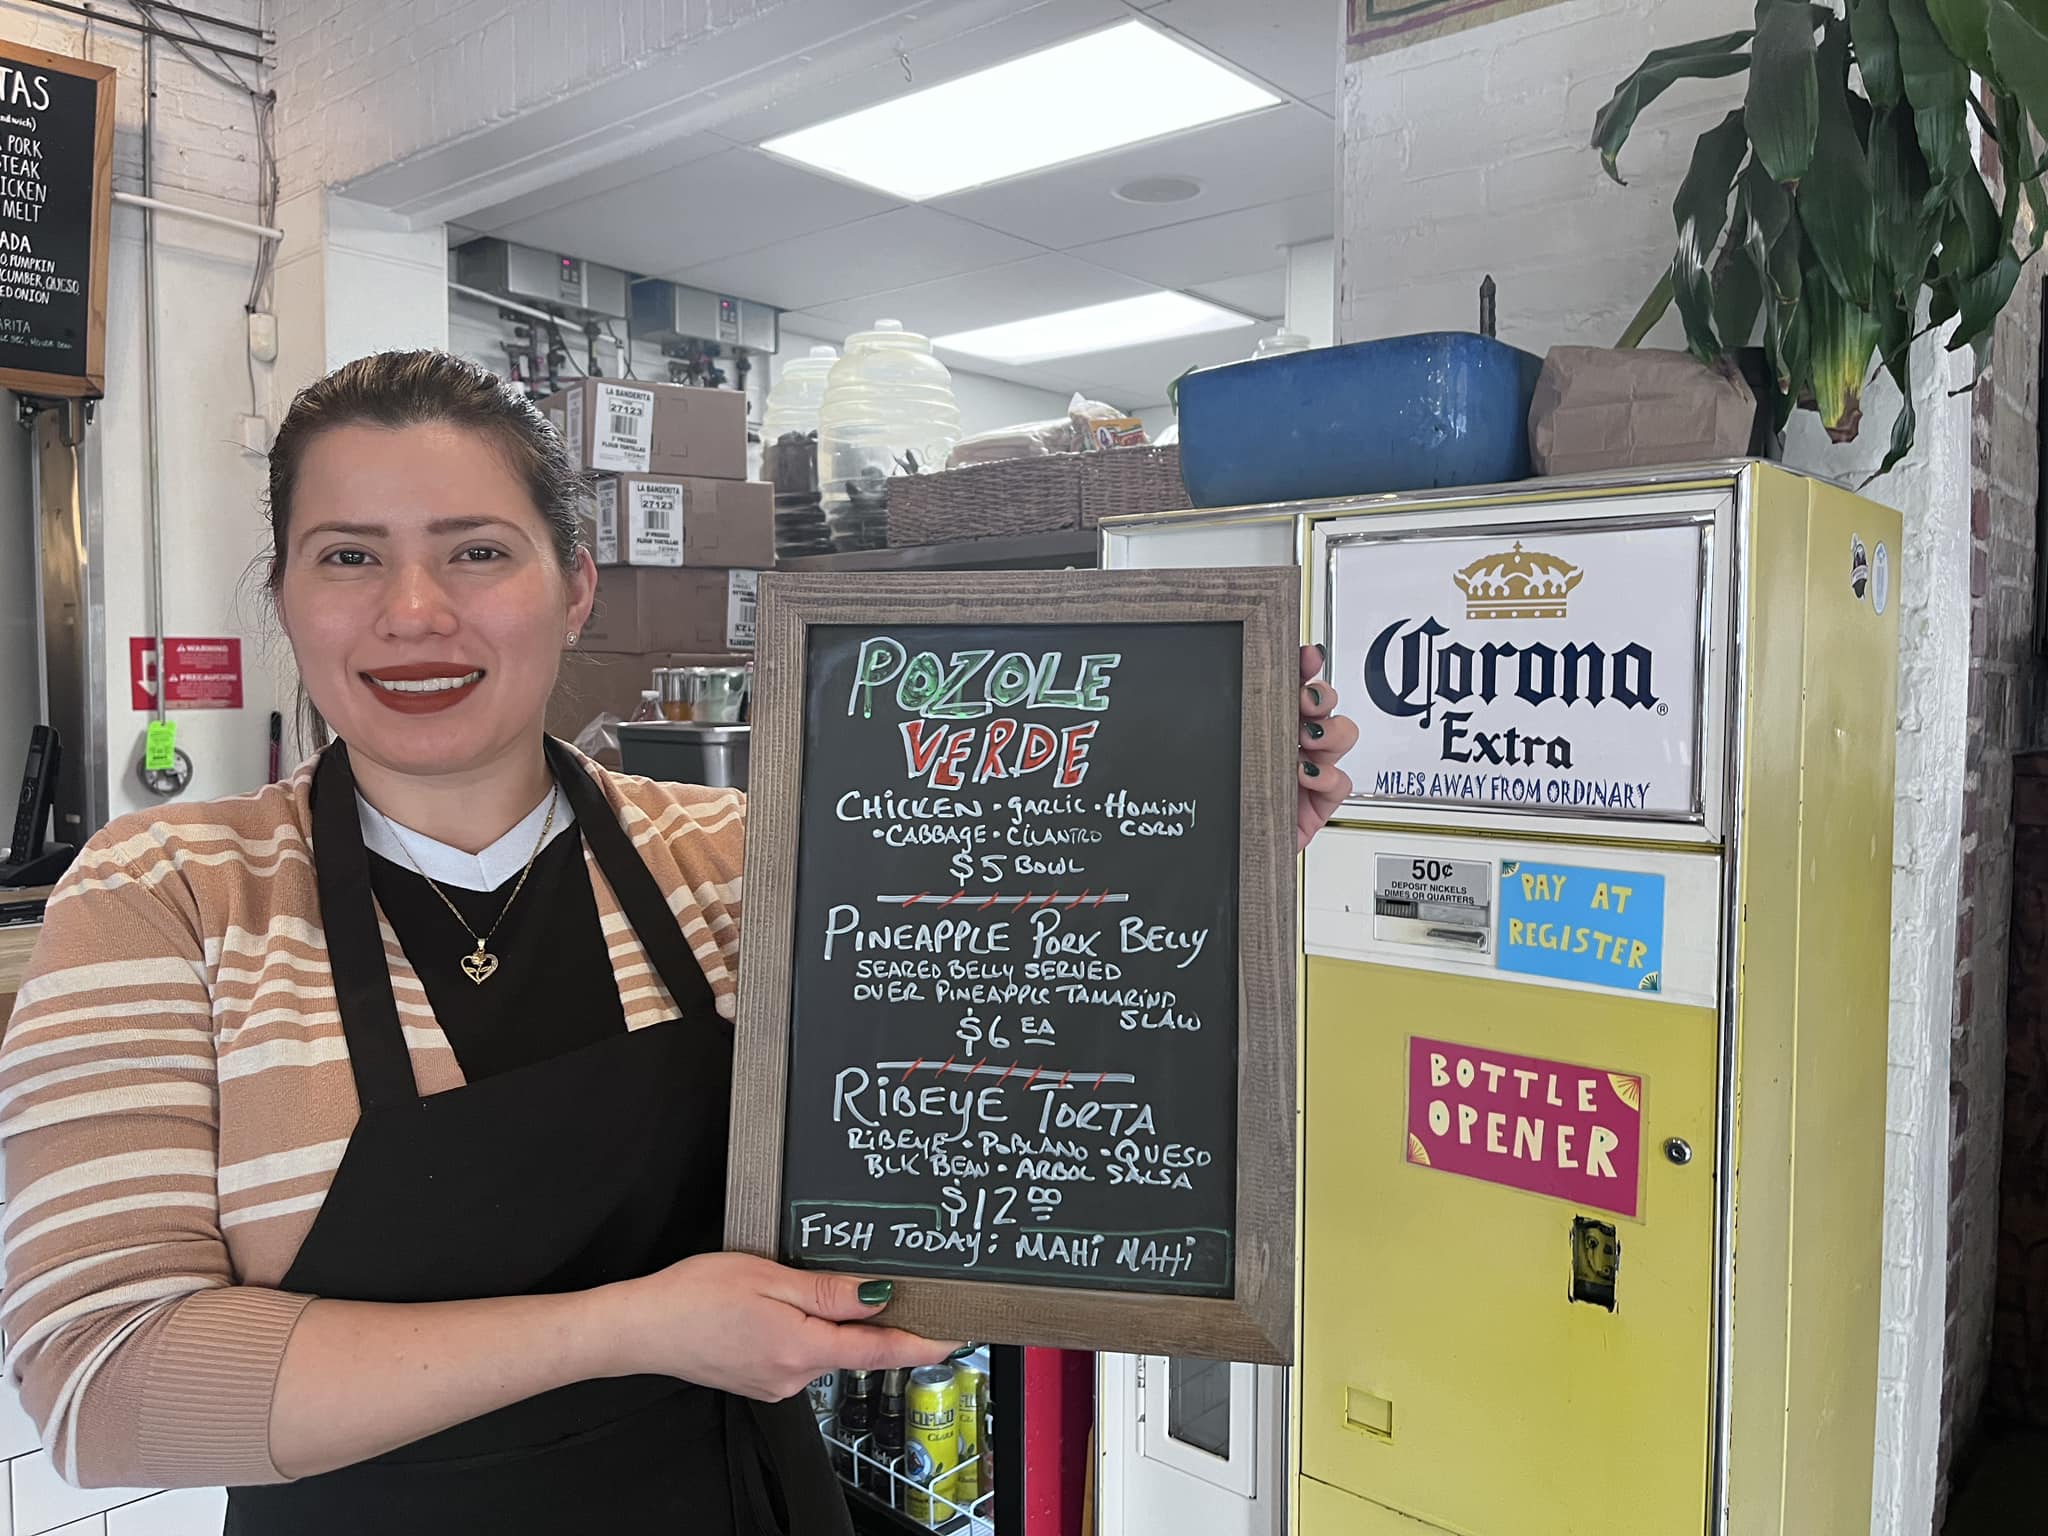 TAS
PORK
STEAK
MELT
PUMPKIN
QUESO,
ONION
WARNING
PRECAUCION
LA BANDERITA
27123
FLOUR TORTILLAS
LA BANDERITA
27123
FLOUR TORTILLAS
POZOLE
VERDE
CHICKEN • GARLIC • HOMINY
• CABBAGE • CILANTRO CORN
$5 BOWL
PINEAPPLE PORK BELLY
SEARED BELLY SERVED
OVER PINEAPPLE TAMARIND
SLAW
$6 EA
RIBEYE TORTA
RIBEYE • POBLANO • QUESO
BLK BEAN • ARBOL SALSA
$12 00
FISH TODAY: MAHI MAHI
Corona®
Extra
MILES AWAY FROM ORDINARY
50¢
DEPOSIT NICKELS
DIMES OR QUARTERS
PAY AT
REGISTER
BOTTLE
OPENER
CLARA